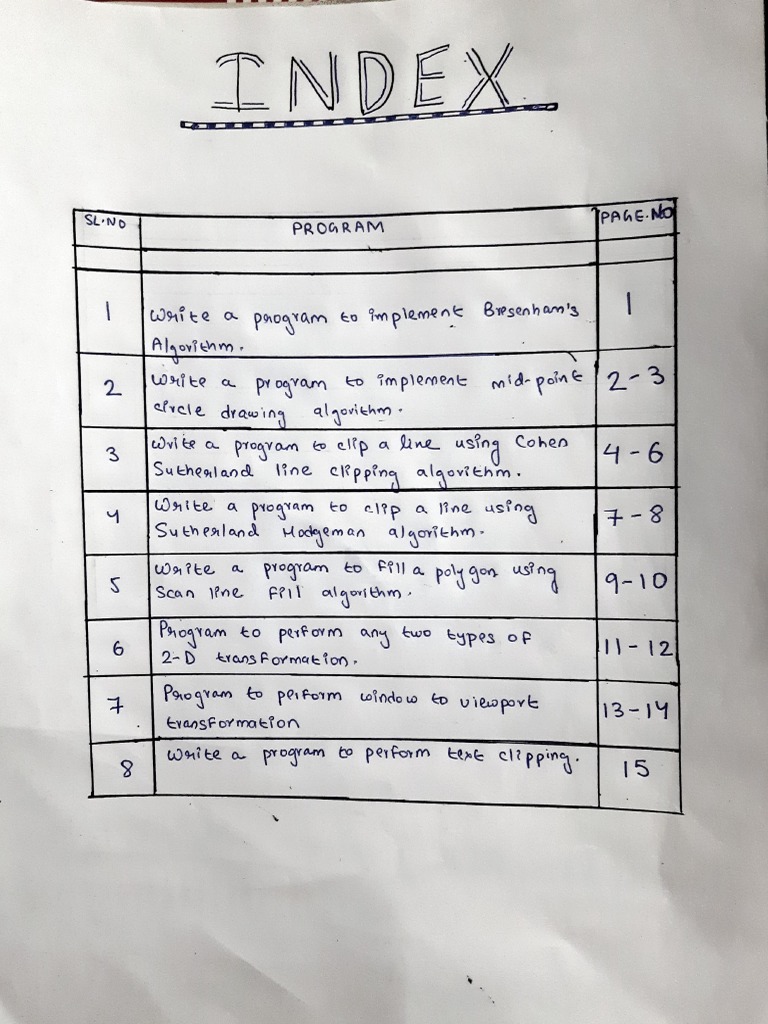 INDEX
SL.NO PROGRAM PAGE.NO
1 Write a program to implement Bresenham's 1
Algorithm.
2 Write a program to implement mid-point 2-3
circle drawing algorithm.
3 Write a program to clip a line using Cohen 4-6
Sutherland line clipping algorithm.
4 Write a program to clip a line using 7-8
Sutherland Hodgeman algorithm.
5 Write a program to fill a polygon using 9-10
Scan line fill algorithm.
6 Program to perform any two types of 11-12
2-D transformation.
7 Program to perform window to viewport 13-14
transformation
8 Write a program to perform text clipping. 15